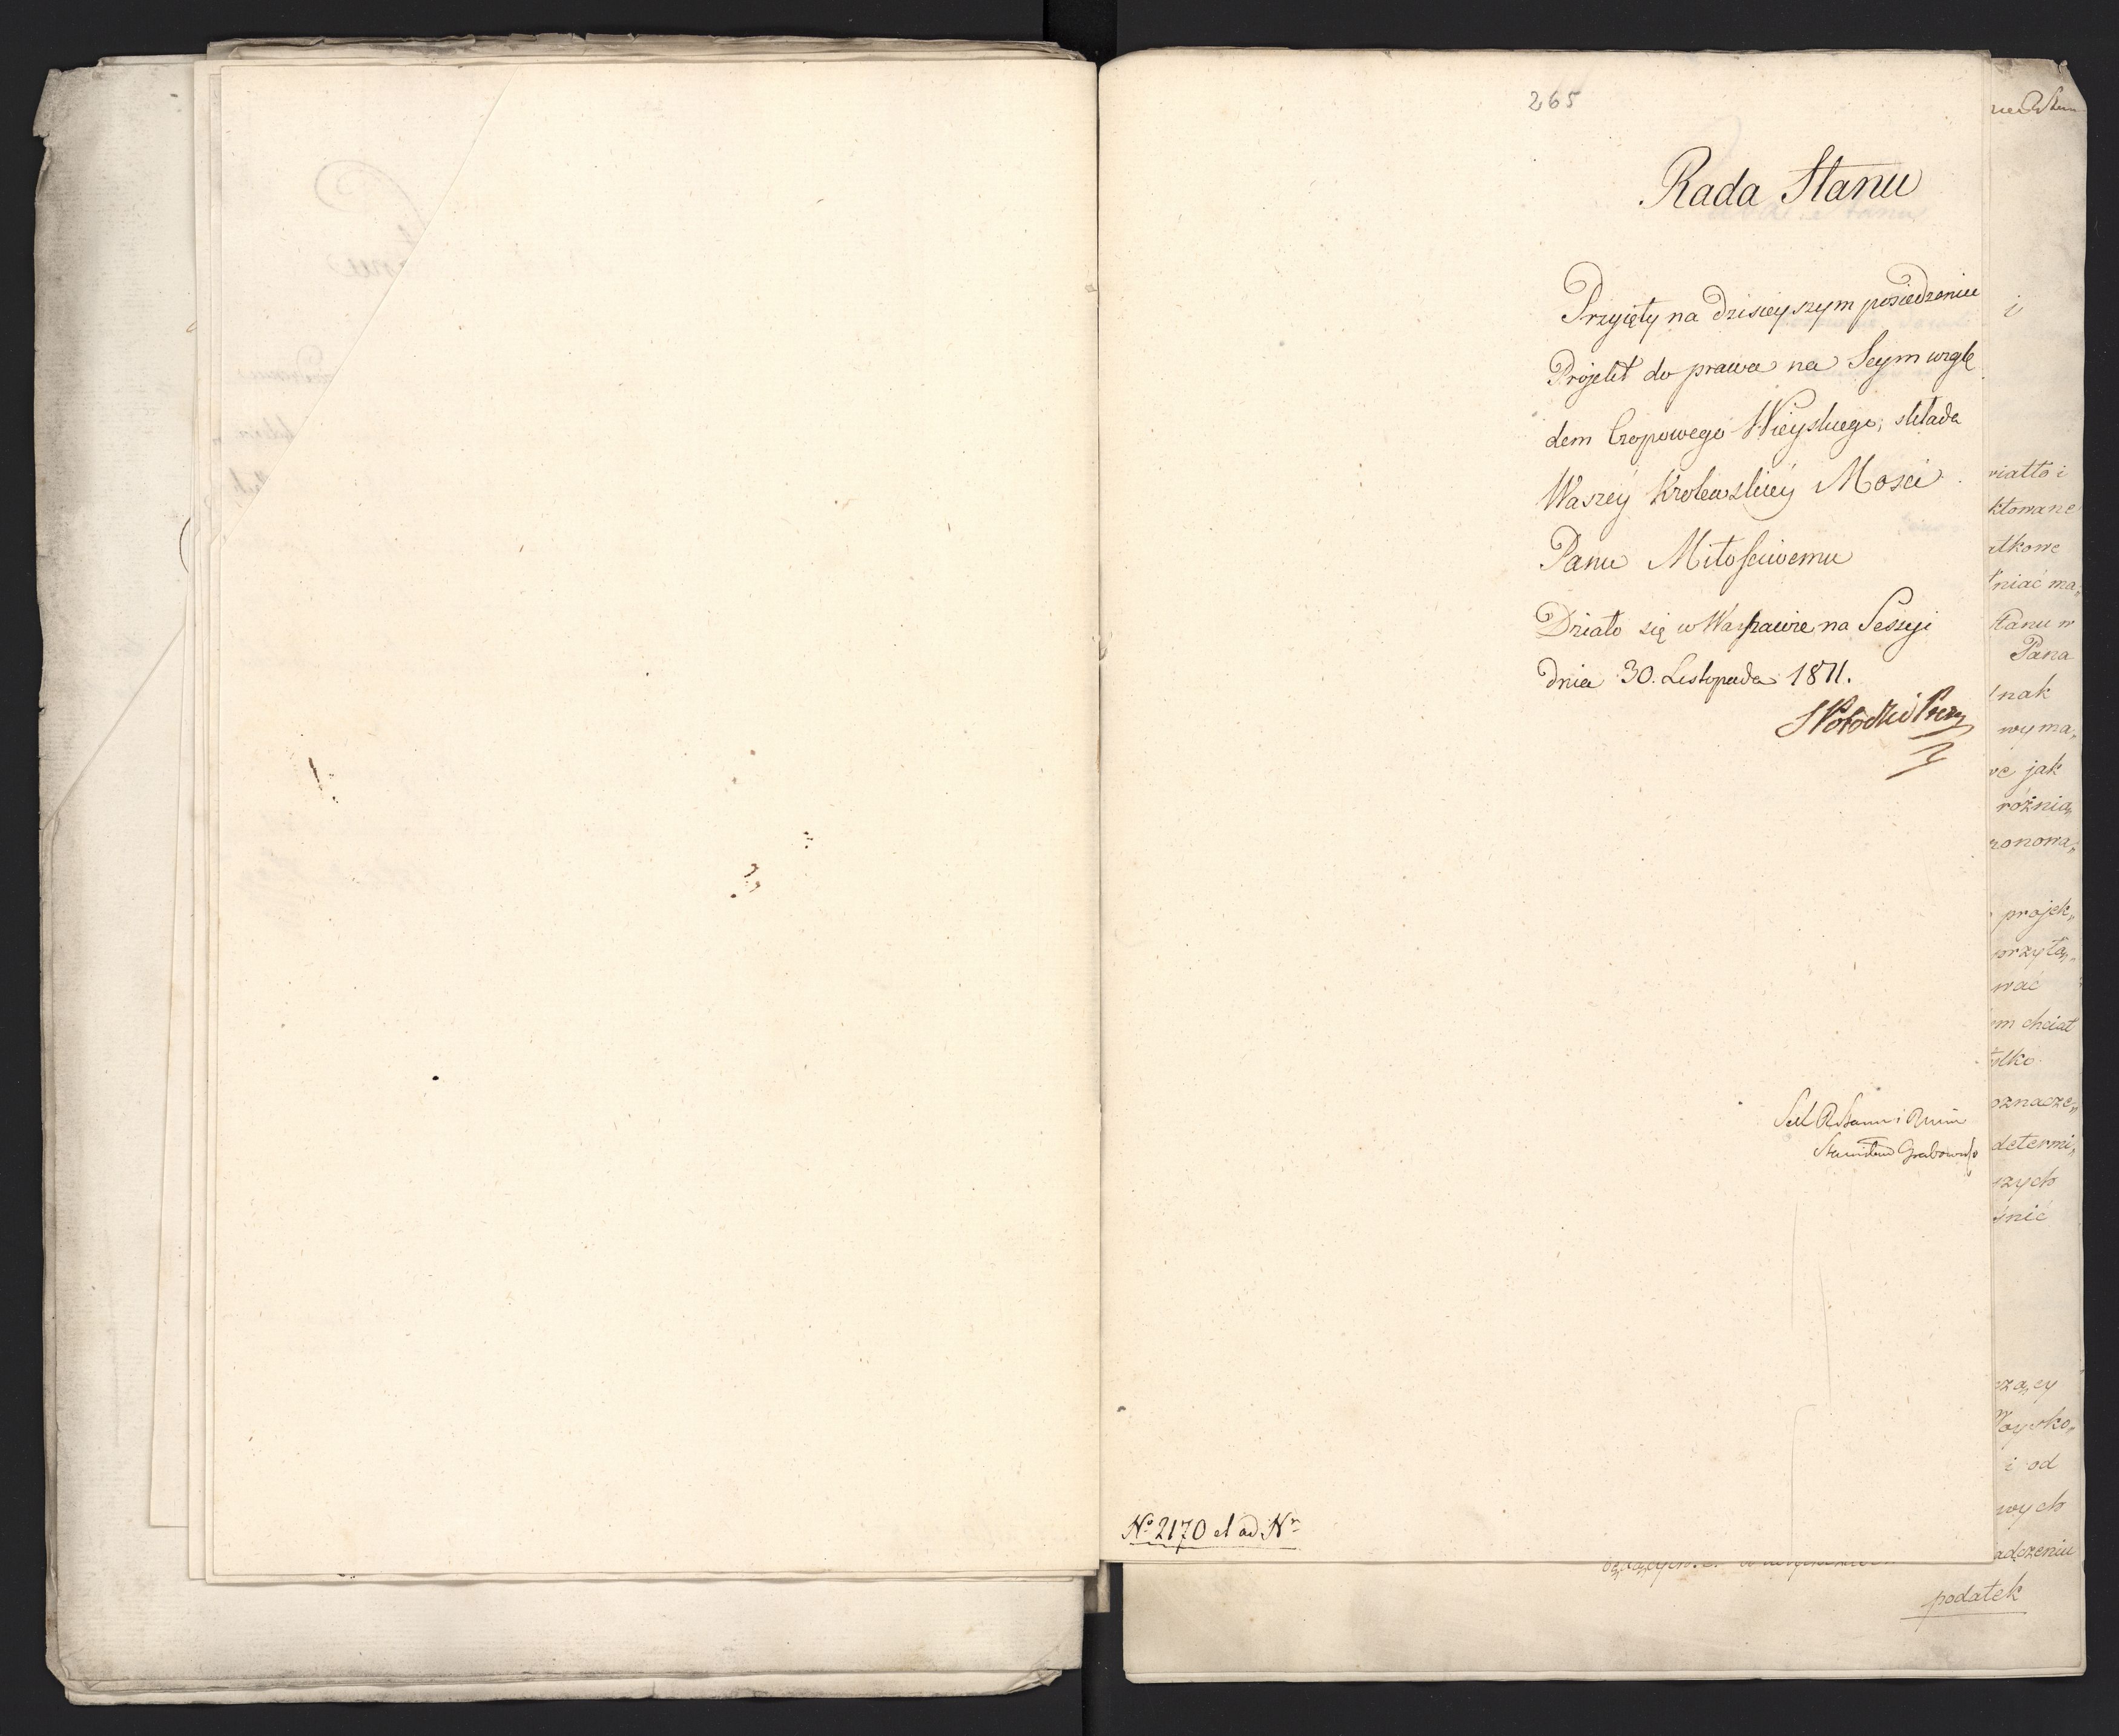 265
Rada Stanu
Przyięty na dzisieyszym posiedzeniu
Projekt do prawa na Seym wzglę
dem Czopowego Wieyskiego, składa
Waszey Królewskiey Mosci
Panu Miłosciwemu
Działo się w Warszawie na Sessyi
dnia 30. Listopada 1811.
Potocki Prez
Sek R Stanu i Minis
Stanisław Grabowski
No 2170 et ad Nr
i
wiatło i
ktowane
atkowe
łniać ma„
Stanu w
Pana
dnak
wyma„
we jak
różnia„
zonowa„
projek„
przyłą„
wać
em chciał
ylko
oznacze„
determi„
szych
śnić
czący
Woysko„
i od
wych
adczeniu
podatek